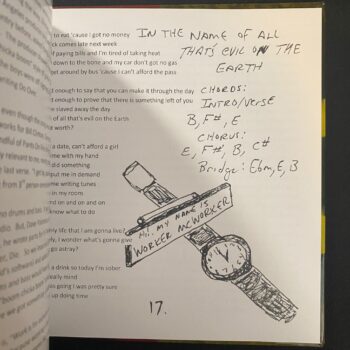 to eat 'cause I got no money
ck comes late next week
f paying bills and I'm tired of taking heat
down to the bone and my car don't got no gas
et around by bus 'cause I can't afford the pass
t enough to say that you can make it through the day
t enough to prove that there is something left of you
e slaved away the day
of all that's evil on the Earth
t worth?
a date, can't afford a girl
me with my hand
did something
put me in demand
e writing tunes
in my room
nd on and on and on
know what to do
ely life that I am gonna live?
ly, I wonder what's gonna give
go astray?
a drink so today I'm sober
eally mind
as going I was pretty sure
up doing time
IN THE NAME OF ALL
THAT'S EVIL ON THE
EARTH
CHORDS:
INTRO/VERSE
B, F#, E
CHORUS:
E, F#, B, C#
Bridge: Ebm, E, B
HI, MY NAME IS
WORKER MCWORKER
17.